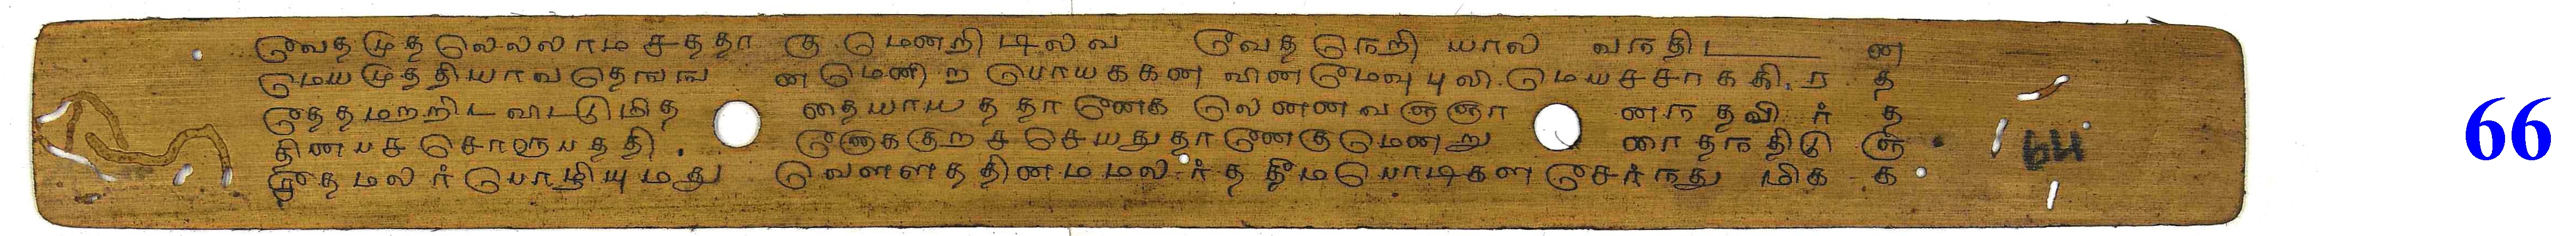 வேதமுத லெலலாம சததா கு மெனறிடிலவ வேதநெறி யால வநதிட ன
மெயமுததியாவதெஙங னமெனிற பொயககண வினமேவுபுலி மெயசசாககிர த
தேததமறறிடவாடடுமித தையாயததானேக லெணணவஞஞா னநதவிர த
தினபசசொரூபததி ஞேகுறசசெயதுதானேகுமெனறு னாதநதிடு ஞ
தமலர பொழியுமது வெளளததினமமலரத தீமபொடிகள சேரநது மிக க
64
66